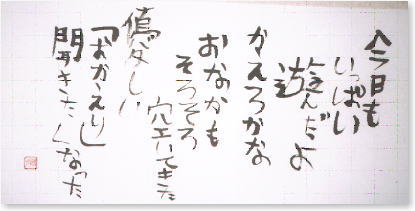 今日も
いっぱい
遊んだよ
かえろかな
おなかも
そろそろ
空いてきた
「おかえり」
聞きたくなった